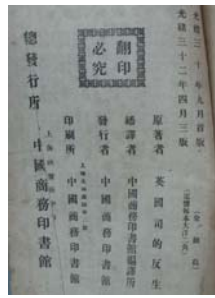 光緒三十年九月首版
光緒三十二年四月三版
翻印必究
原著者 英國司的反生
繙譯者 中國商務印書館編譯所
發行者 中國商務印書館
印刷所 中國商務印書館
總發行所 中國商務印書館